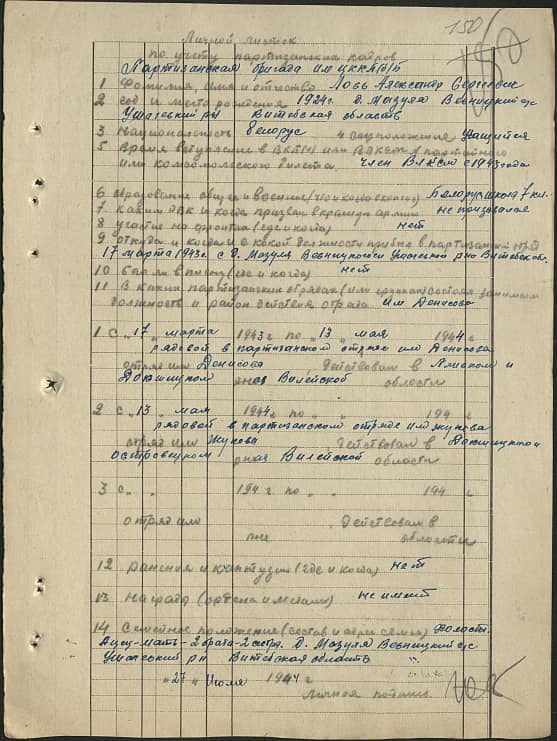 150
Личной листок
по учету партизанских кадров
Партизанская бригада им ЦККП(б)Б
1 Фамилия, имя и отчество Лось Александр Сергеевич
2 год и место рождения 1924г. д. Мазуля Вовницкий с/с
Ушачский р-н Витебская область
3 Национальность белорус 4 соц. положение учащийся
5 Время вступления в ВКП(б) или ВЛКСМ № партийного
или комсомольского билета. член ВЛКСМ с 1943 года
6 образование общее и военное (что и когда окончил) Белорус школа 7 кл.
7 Каким РВК и когда призван в красную армию не призывался
8 участие на фронтах (где и когда) нет
9 откуда и когда и с какой должности прибыл в партизанский отряд
17 марта 1943г. с д. Мазуля Вовницкого с/с Ушачский р-на Витебской обл.
10 был ли в плену (где и когда) нет
11 В каких партизанских отрядах (или группах) состоял занимаем
должность и район действия отряда им Денисова
1 с „17 „ марта 1943 г по „13 „ мая 1944 г.
рядовой в партизанском отряде им Денисова
отряд им Денисова Действовал в Илиском и
Докшицком р-нах Вилейской области
2 с „13 „ мая 1944 г. по „ „ 194 г
рядовой в партизанском отряде им Жукова
отряд им Жукова Действовал в Докшицком
островецком р-нах Вилейской области
3 с „ „ 194 г по „ „ 194 г
отряд им Действовал в
р-не области
12 ранения и контузии (где и когда) нет
13 награда (ордена и медали) не имеет
14 Семейное положение (состав и адрес семьи) Холост.
мать - 2 брата - 2 сестр. д. Мазуля Вовницкий с/с
Ушачский р-н Витебская область
„27 „ Июля 1944 г
Личная подпись